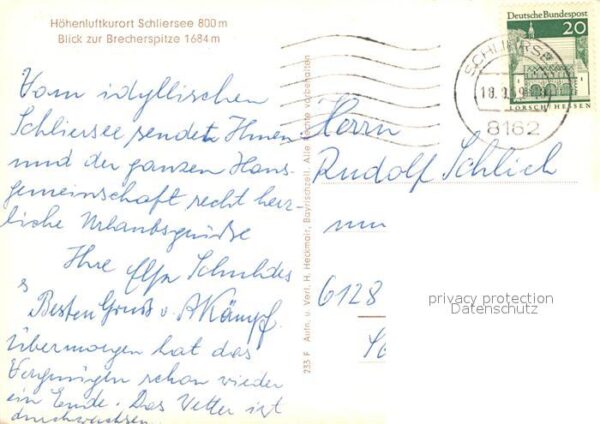 Höhenluftkurort Schliersee 800 m
Blick zur Brecherspitze 1684 m
Vom idyllischen
Schliersee sendet Ihnen
und der ganzen Haus-
gemeinschaft recht herz-
liche Urlaubsgrüße
Ihre Elfa Schuldes
Besten Gruß v. A Kämpf.
Übermorgen hat das
Vergnügen schon wieder
ein Ende. Das Wetter ist
durchwachsen
233 F Aufn. u. Verl. H. Heckmair, Bayrischzell, Alle Rechte vorbehalten
Deutsche Bundespost
20
LORSCH/HESSEN
SCHLIERSEE
18.9.69
8162
Herrn
Rudolf Schlich
6128
privacy protection
Datenschutz